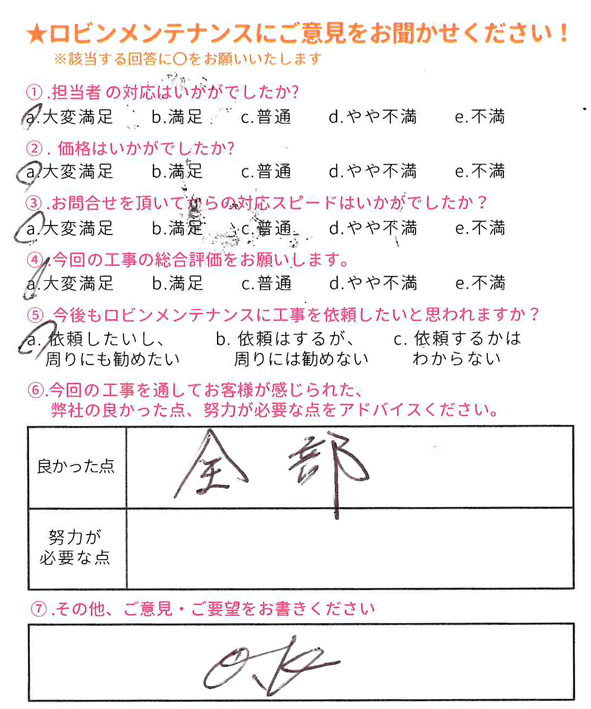 ★ロビンメンテナンスにご意見をお聞かせください！
※該当する回答に〇をお願いいたします
①.担当者の対応はいががでしたか?
a.大変満足 b.満足 c.普通 d.やや不満 e.不満
②.価格はいかがでしたか?
a.大変満足 b.満足 c.普通 d.やや不満 e.不満
③.お問合せを頂いてからの対応スピードはいかがでしたか？
a.大変満足 b.満足 c.普通 d.やや不満 e.不満
④.今回の工事の総合評価をお願いします。
a.大変満足 b.満足 c.普通 d.やや不満 e.不満
⑤.今後もロビンメンテナンスに工事を依頼したいと思われますか？
a. 依頼したいし、 b. 依頼はするが、 c. 依頼するかは
周りにも勧めたい 周りには勧めない わからない
⑥.今回の工事を通してお客様が感じられた、
弊社の良かった点、努力が必要な点をアドバイスください。
良かった点 全部
努力が
必要な点
⑦.その他、ご意見・ご要望をお書きください
OK